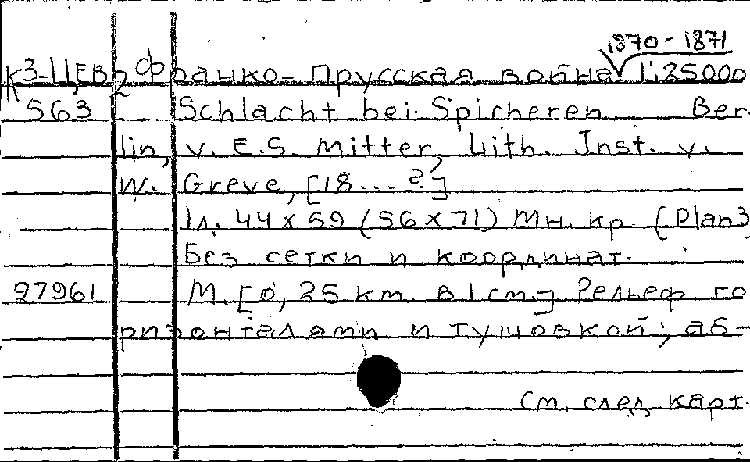 1870-1871
К3-ЦЕВ2 Франко-Прусская война 1:25000
563 Schlacht bei Spicheren Ber
lin, v. E.S. Mitter, Lith. Inst. v.
W. Greve, [18...?]
1л. 44x59 (56x71) Мн. кр. (Plan3
Без сетки и координат.
27961 М. [0,25 км. в 1 см.] Рельеф го
ризонталями и тушовкой; аб-
См. след карт.